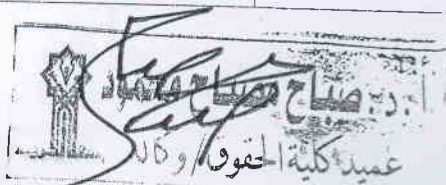 أ.د. صباح مصباح محمود
عميد كلية الحقوق / وكالة